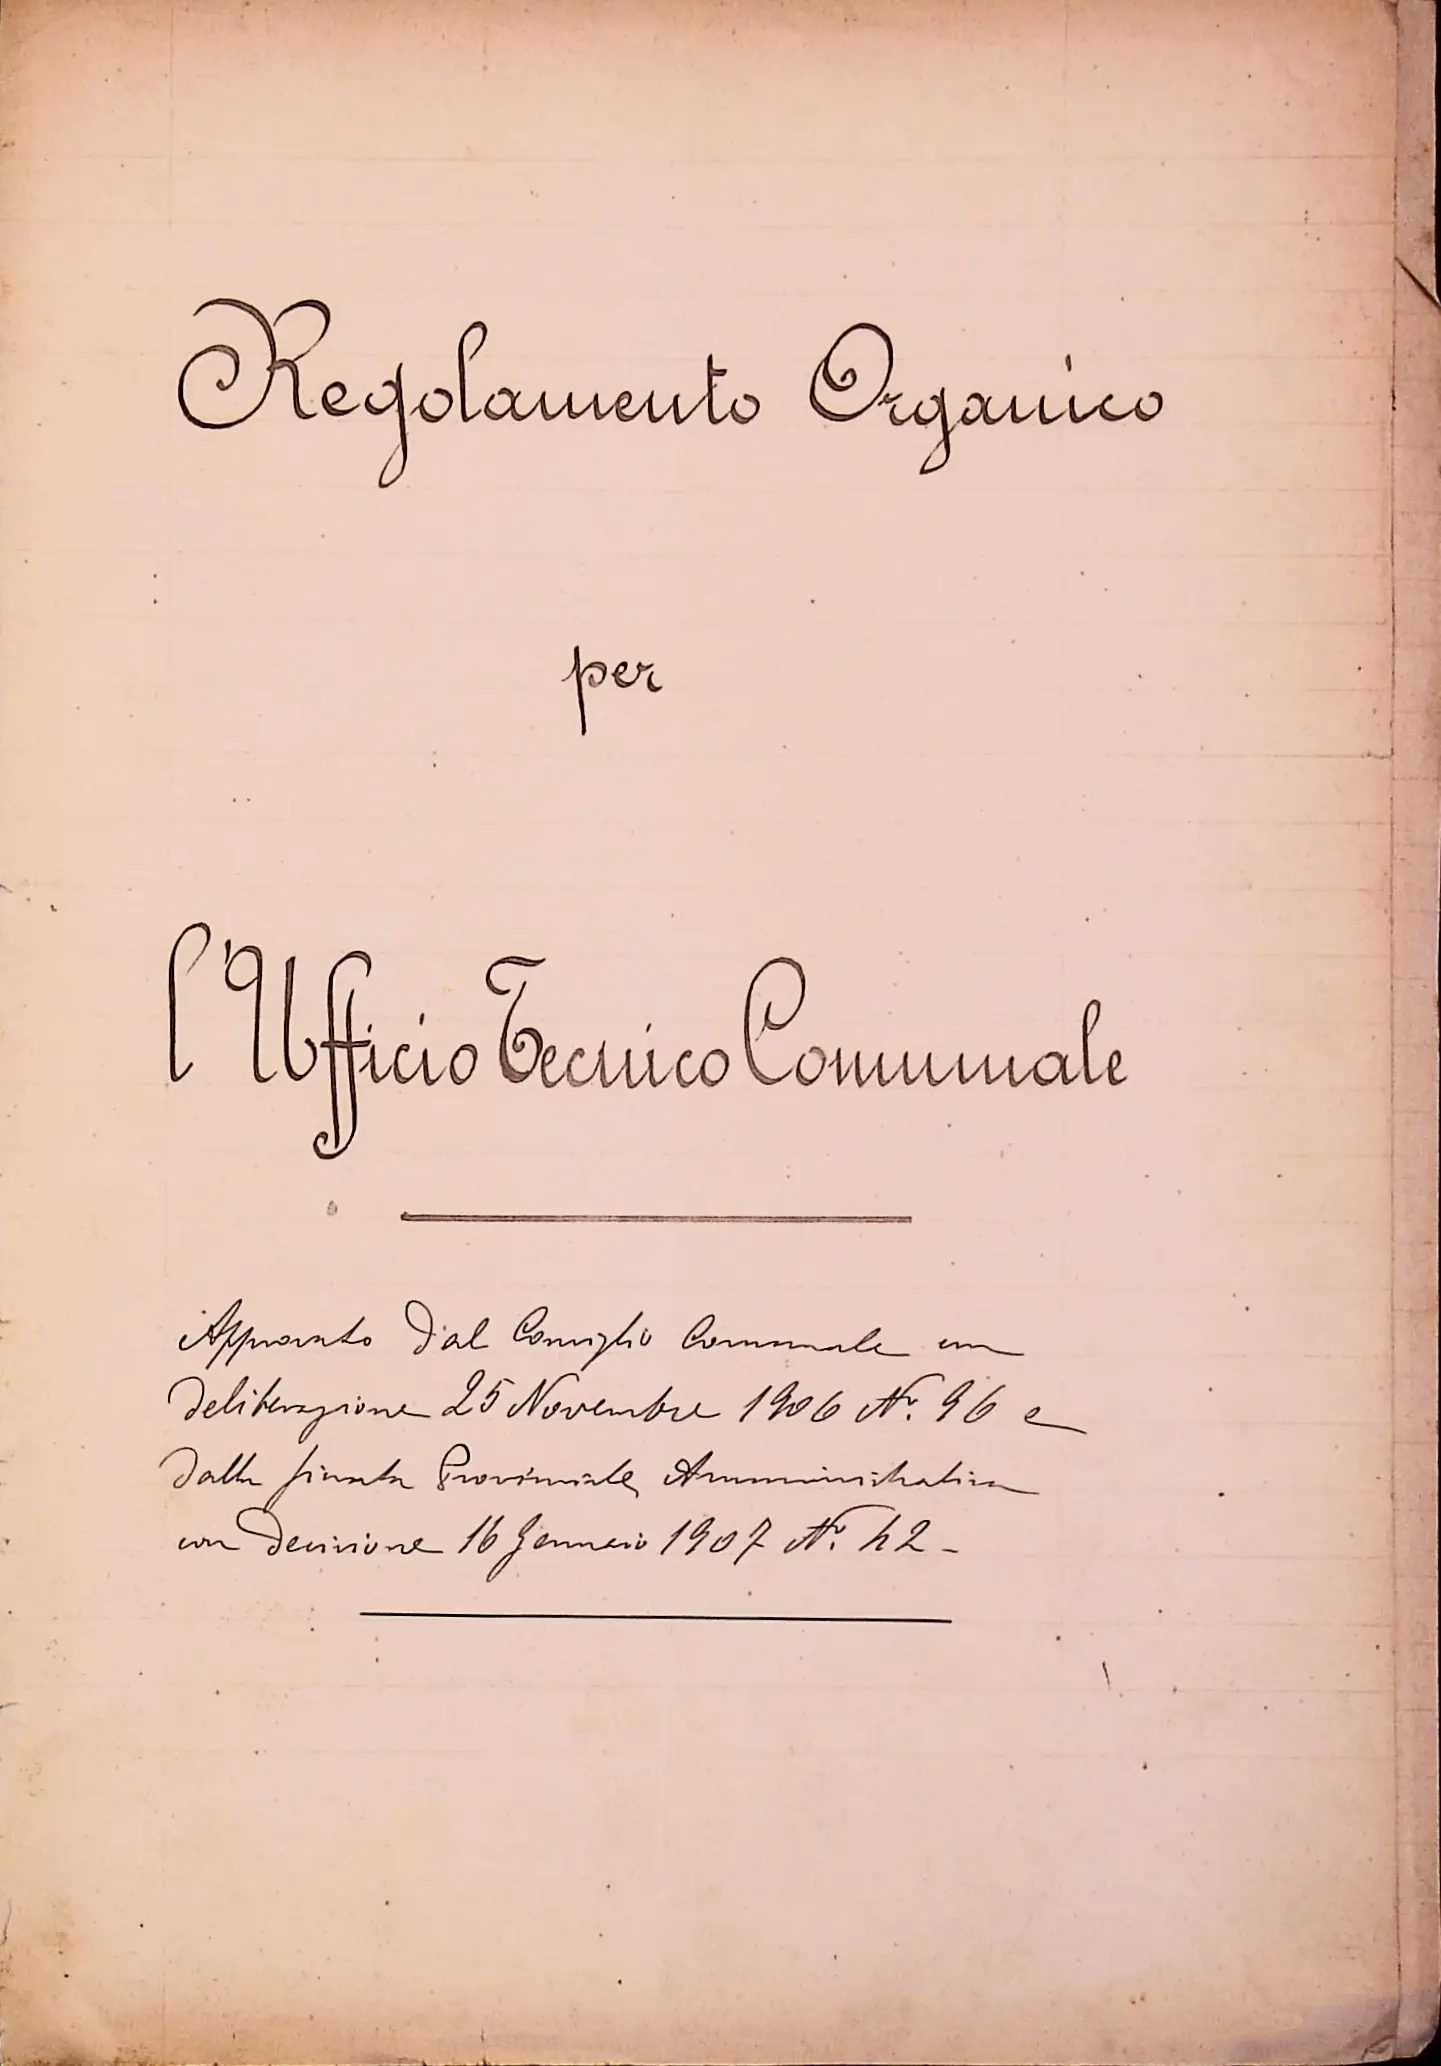 Regolamento Organico
per
l'Ufficio Tecnico Comunale
Approvato dal Consiglio Comunale con
deliberazione 25 Novembre 1906 Nr. 96 e
dalla Giunta Provinciale Amministrativa
con decisione 16 Gennaio 1907 Nr. 42 -